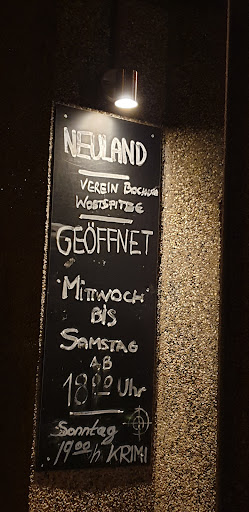 NEULAND
VEREIN BOCHUM
WESTSPITZE
GEÖFFNET
MITTWOCH
BIS
SAMSTAG
AB
18.00 Uhr
Sonntag
19.00 h KRIMI